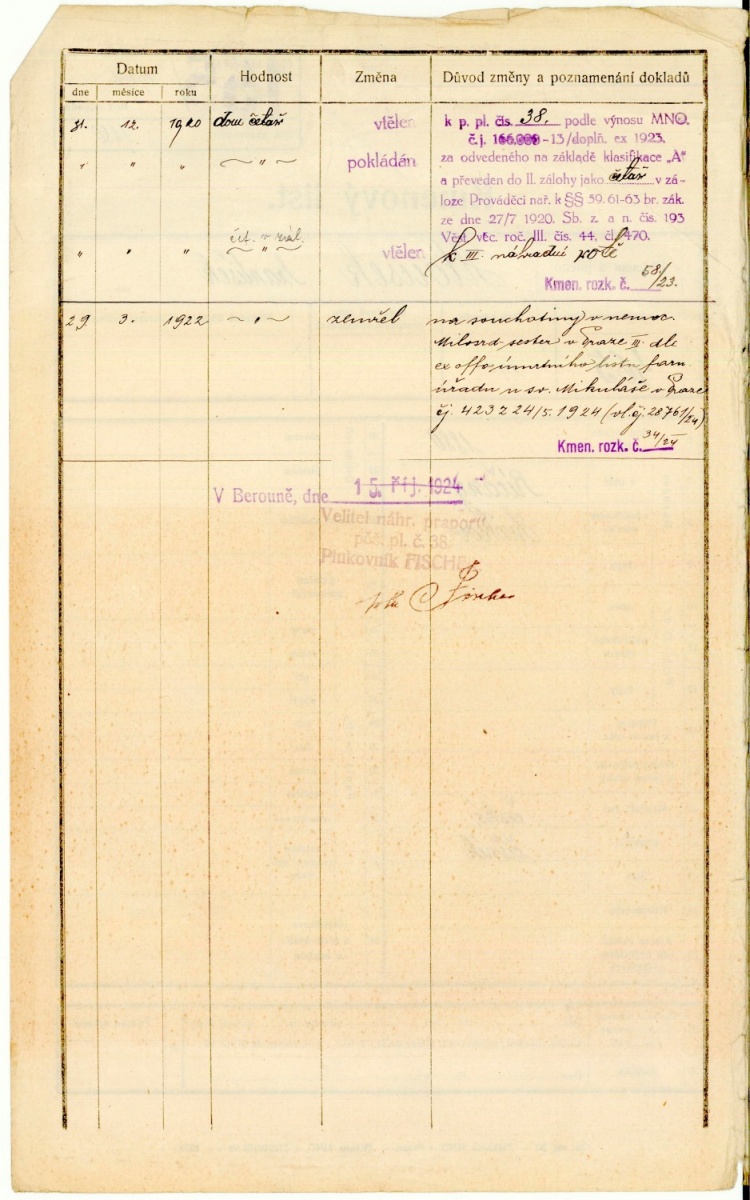 Datum
Hodnost
Změna
Důvod změny a poznamenání dokladů
dne
měsíce
roku
31. 12. 1920 dom četař vtělen k p. pl. čís. 38. podle výnosu MNO.
č. j. -13/doplň. ex 1923.
" " " — " — pokládán za odvedeného na základě klasifikace „A"
a převeden do II. zálohy jako četař v zá-
loze Prováděcí nař. k §§ 59. 61-63 br. zák.
ze dne 27/7 1920. Sb. z. a n. čís. 193
Věst věc. roč. III. čís. 44, čl. 470.
čet. v zál.
" " " — " — vtělen k III. náhradní rotě
Kmen. rozk. č. 58/23.
29 3. 1922 — " — zemřel na souchotiny v nemoc.
Milosrd sester v Praze III dle
ex offo úmrtního listu farn.
úřadu u sv. Mikuláše v Praze
čj. 423 z 24/5. 1924 (vl. čj. 28761/24)
Kmen. rozk. č. 34/24
V Berouně, dne 15. říj. 1924
Velitel náhr. praporu
pěš. pl. č. 38.
Plukovník FISCHER
Fischer